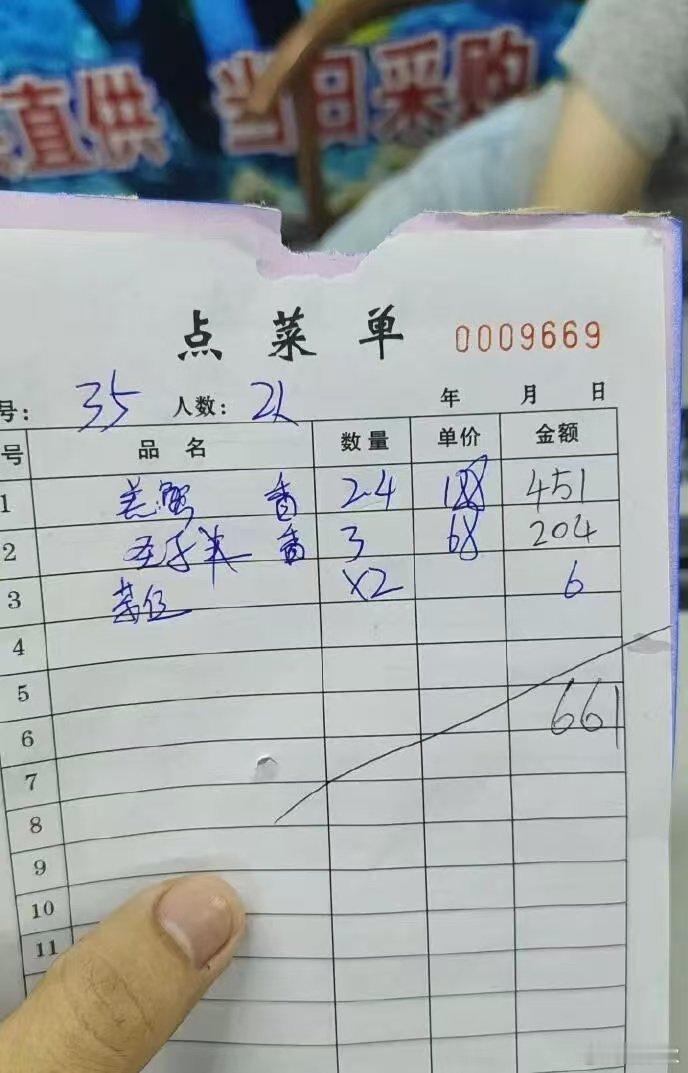 直供 当日采购
点菜单 0009669
号: 35 人数: 2人 年 月 日
号 品名 数量 单价 金额
1 羔蟹 斤 2.4 188 451
2 斤 3 68 204
3 茶位 X2 6
4
5
661
6
7
8
9
10
11